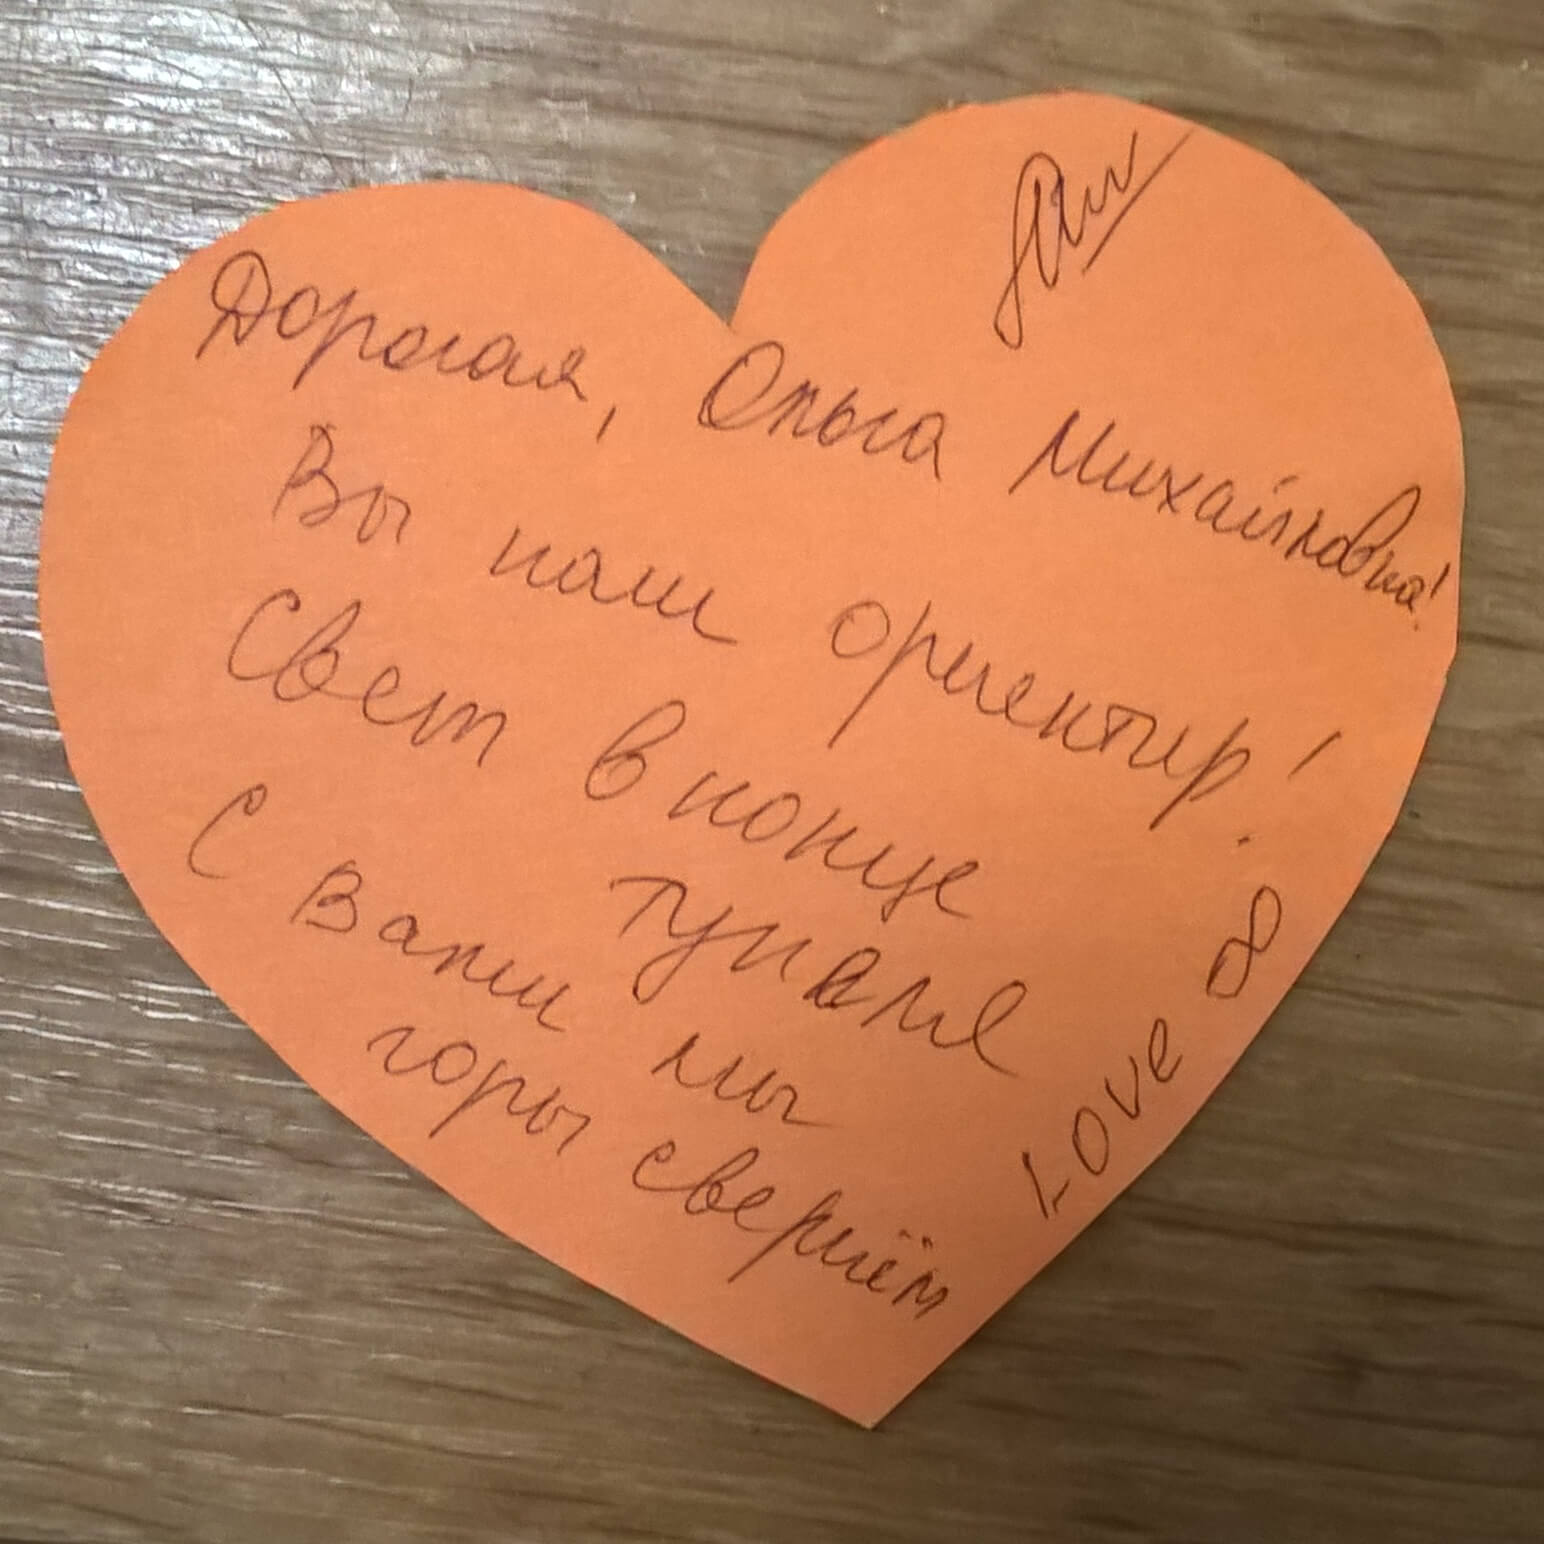 Дорогая, Ольга Михайловна!
Вы наш ориентир!
Свет в конце
тунеле
С Вами мы
горы свернём
Love